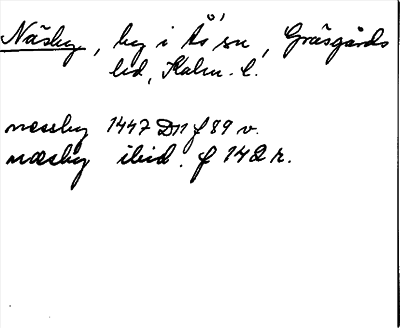 Näsby, by i Ås sn, Gräsgårds
hd, Kalm. l.
nessby 1447 Dn f 89 v.
næsby ibid. f 142 r.